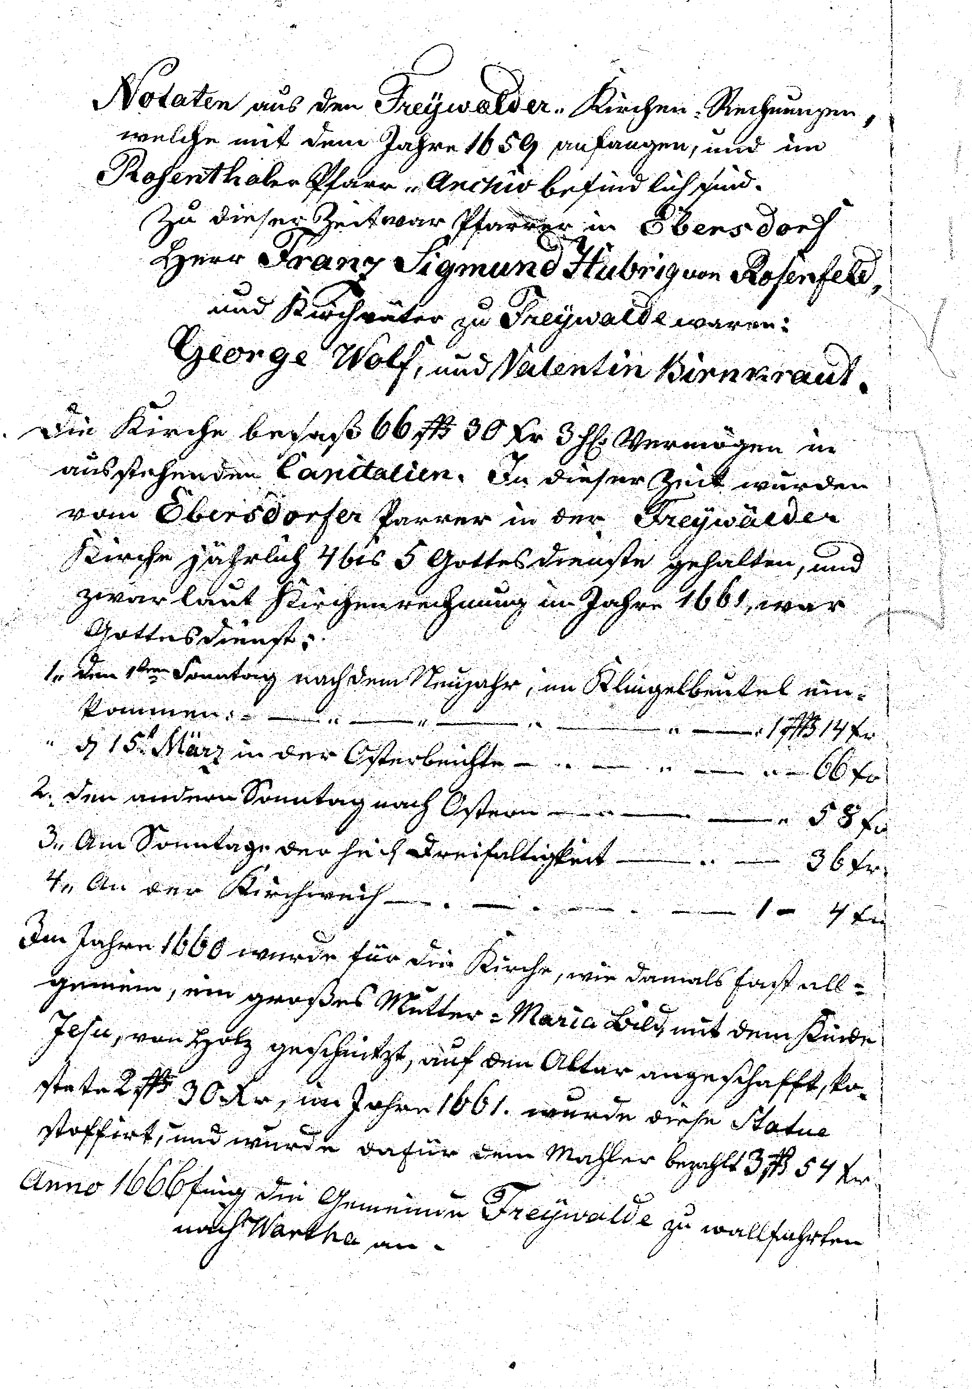 Notaten aus den Freÿwalder„ Kirchen-Rechnungen,
welche mit dem Jahre 1659 anfangen, und im
Rosenthaler Pfarr„ Archiv befindlich sind.
Zu dieser Zeit war Pfarrer in Ebersdorf
Herr Franz Sigmund Hubrig von Rosenfeld,
und Kirchväter zu Freÿwalde waren:
George Wolf, und Valentin Birnkraut.
Die Kirche besaß 66 f 30 kr 3 hl Vermögen in
ausstehenden Capitalien. In dieser Zeit wurden
vom Ebersdorfer Parrer in der Freÿwälder
Kirche jährlich 4 bis 5 Gottesdienste gehalten, und
zwar laut Kirchenrechnung im Jahre 1661, war
Gottesdienst:
1„ den 1ten Sonntag nach dem Neujahr, im Klingelbeutel ein-
kommen: - — „ — „ — „ — „ — 1 f 14 kr
„ d 15t März in der Osterbeichte — „ — „ — „ — 66 kr
2. den andern Sonntag nach Ostern — „ — — „ 58 kr
3„ Am Sonntage der heil Dreifaltigkeit — „ — 36 kr.
4„ An der Kirchweih — . — . — . — 1 - 4 kr
Im Jahre 1660 wurde für die Kirche, wie damals fast all-
gemein, ein großes Mutter-Maria Bild mit dem Kinde
Jesu, von Holz geschnitzt, auf den Altar angeschafft, ko-
stete 2 f 30 Kr, im Jahre 1661. wurde diese Statue
stoffirt, und wurde dafür dem Mahler bezahlt 3 f 54 kr
Anno 1666 fing die Gemeinde Freÿwalde zu wallfahrten
nach Wartha an.